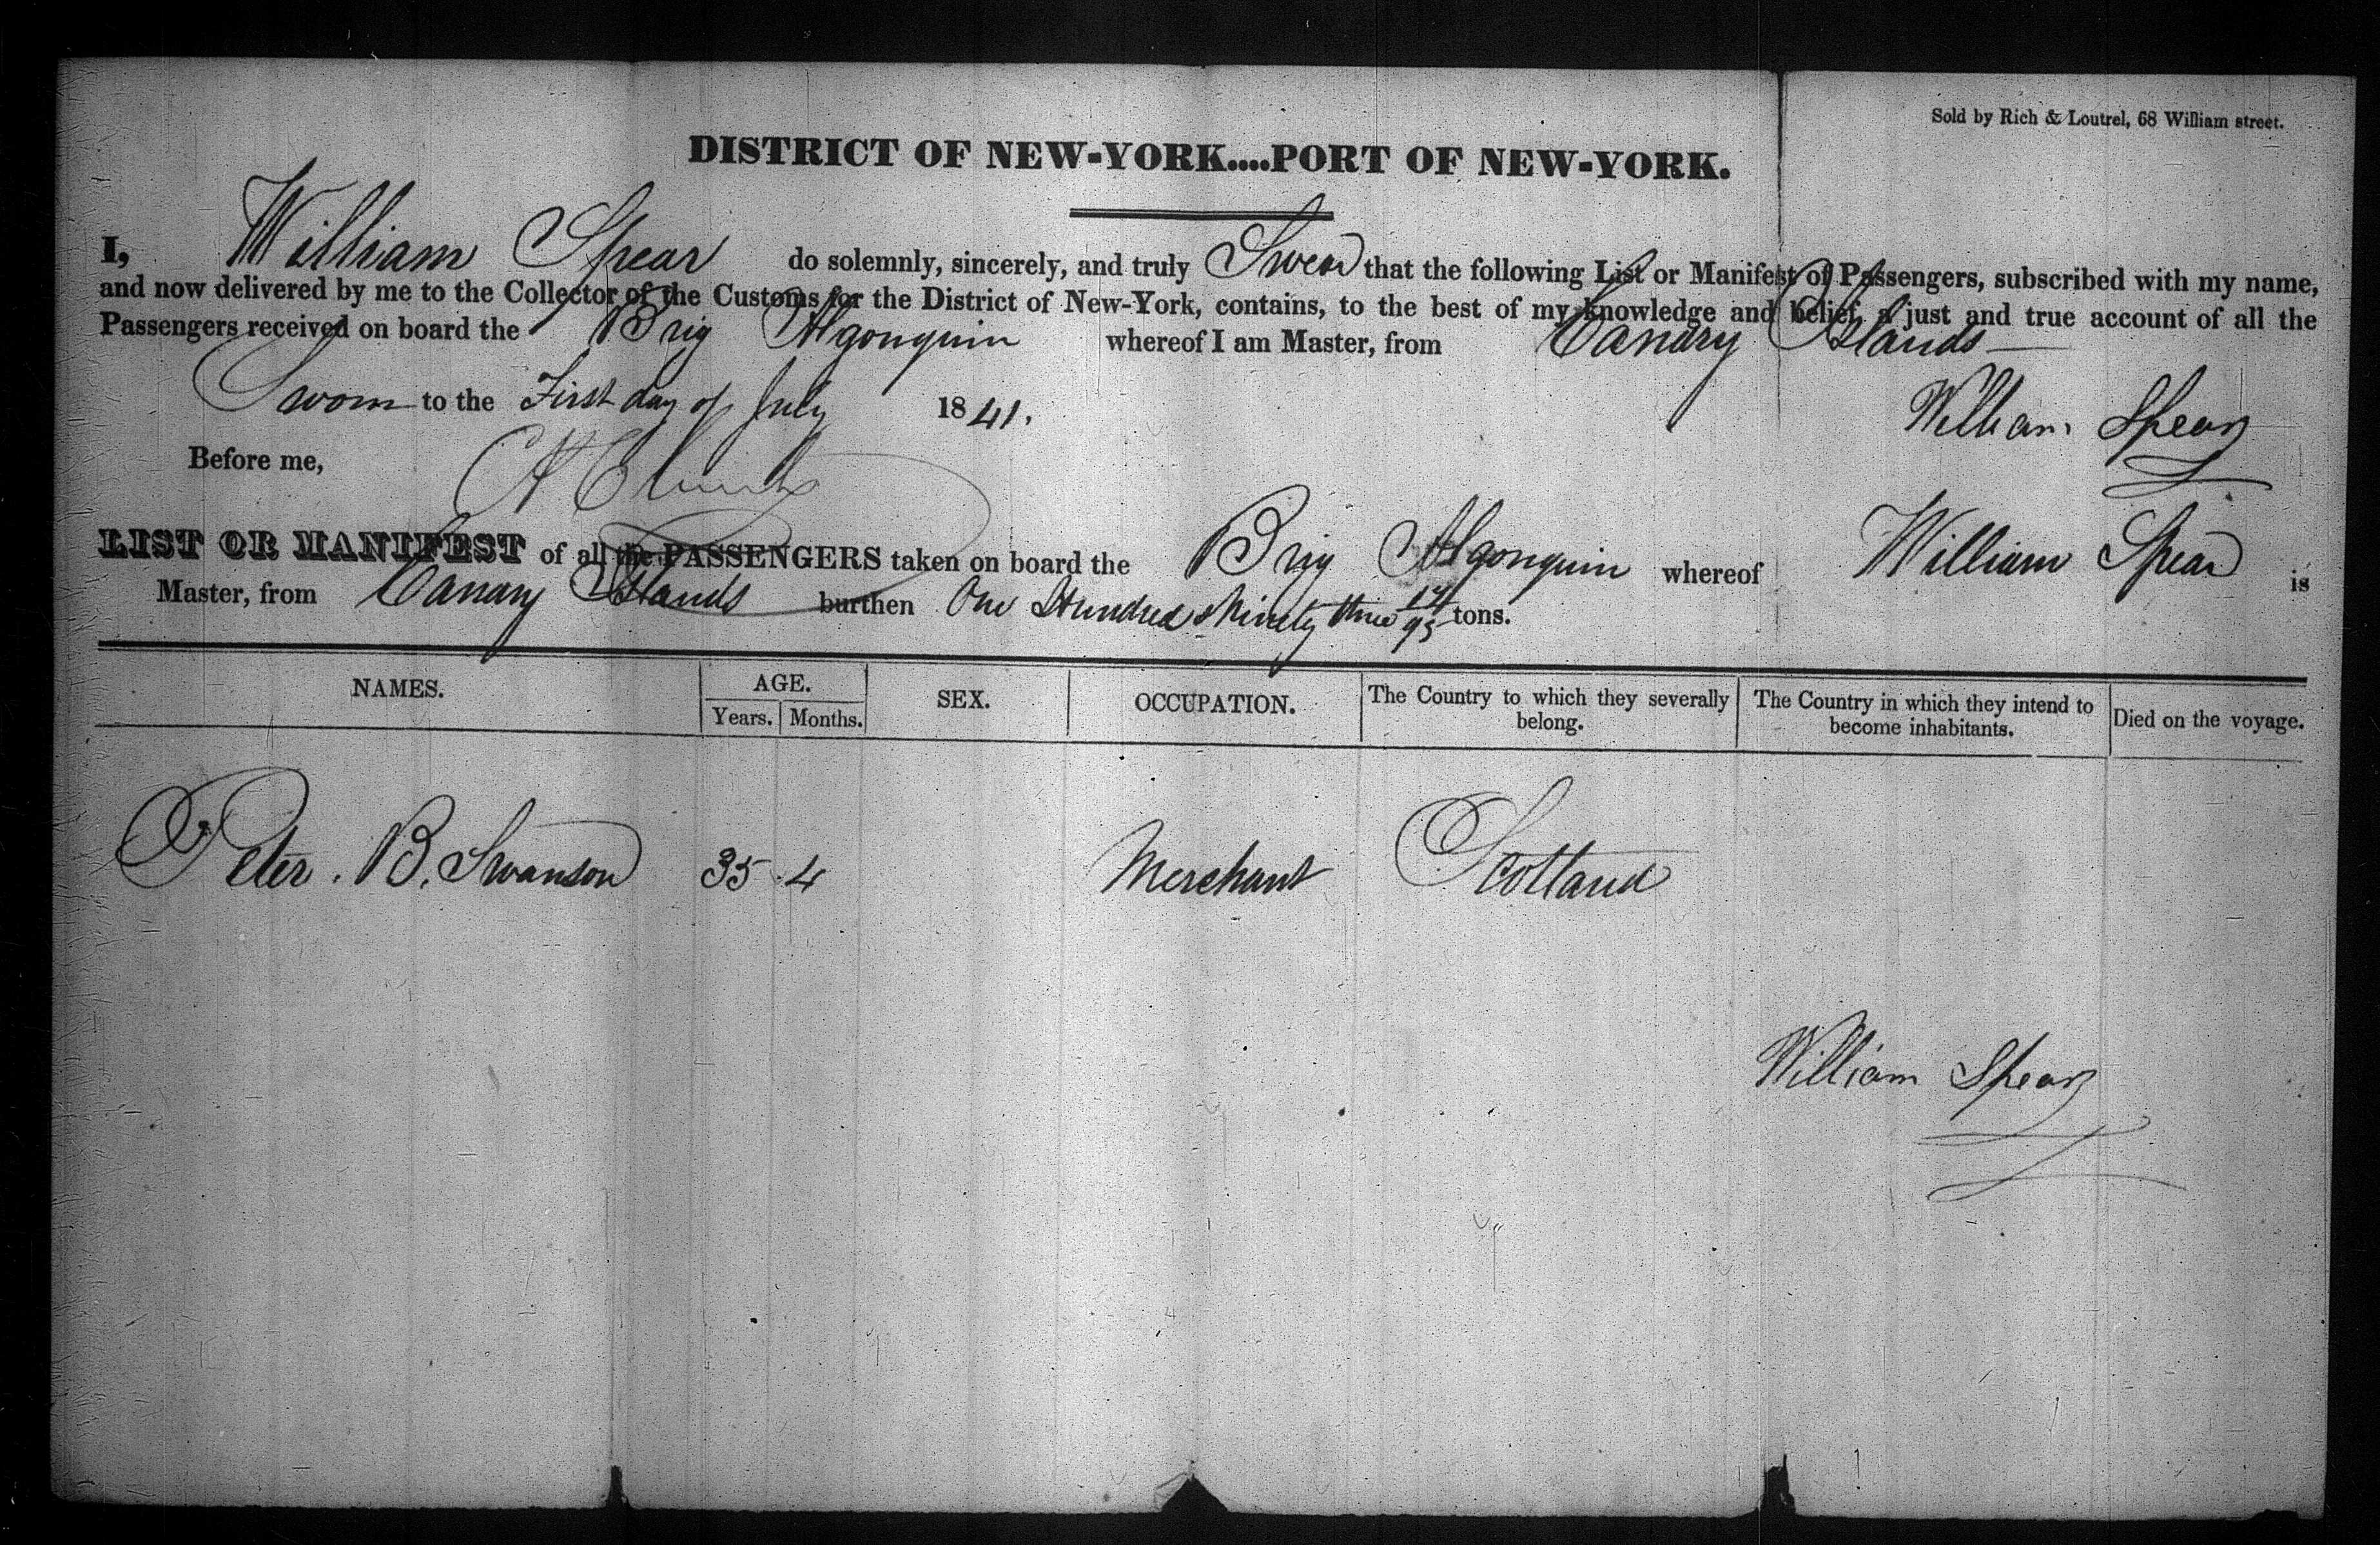 Sold by Rich & Loutrel, 68 William street.
DISTRICT OF NEW-YORK....PORT OF NEW-YORK.
I, William Spear do solemnly, sincerely, and truly Swear that the following List or Manifest of Passengers, subscribed with my name,
and now delivered by me to the Collector of the Customs for the District of New-York, contains, to the best of my knowledge and belief, a just and true account of all the
Passengers received on board the Brig Algonquin whereof I am Master, from Canary Islands
Sworn to the First day of July 1841.
William Spear
Before me,
LIST OR MANIFEST of all the PASSENGERS taken on board the Brig Algonquin whereof William Spear is
Master, from Canary Islands burthen One Hundred & Ninety three 14/95 tons.
NAMES. AGE. SEX. OCCUPATION. The Country to which they severally belong. The Country in which they intend to become inhabitants. Died on the voyage.
Years. Months.
Peter. B. Swanson 35 4 Merchant Scotland
William Spear